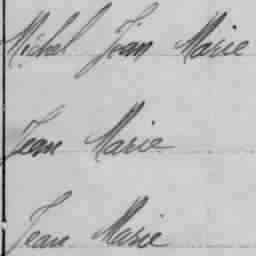 Michel Jean Marie
Jean Marie
Jean Marie